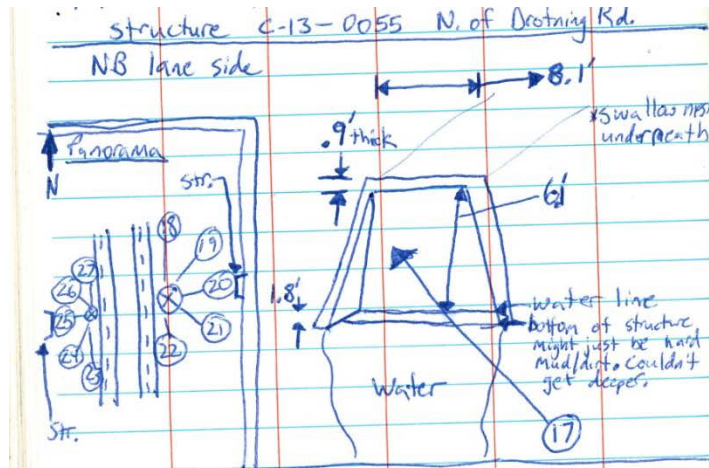 structure C-13-0055 N. of Drotning Rd.
NB lane side
8.1'
.9' thick
*swallow nest
underneath
Panorama
N
Str.
6.1'
18
19
27
26
20
25
1.8'
21
24
22
23
water line
bottom of structure
might just be hard
mud/dirt. Couldn't
get deeper.
Water
17
Str.